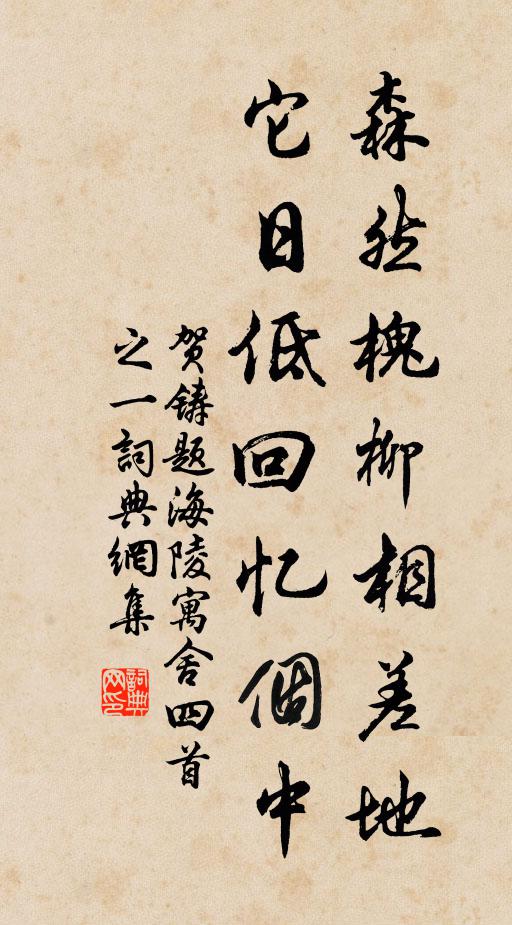 森然槐柳相差地
它日低回忆個中
贺鋳题海陵寓舍四首
之一詞典網集
詞典
网印